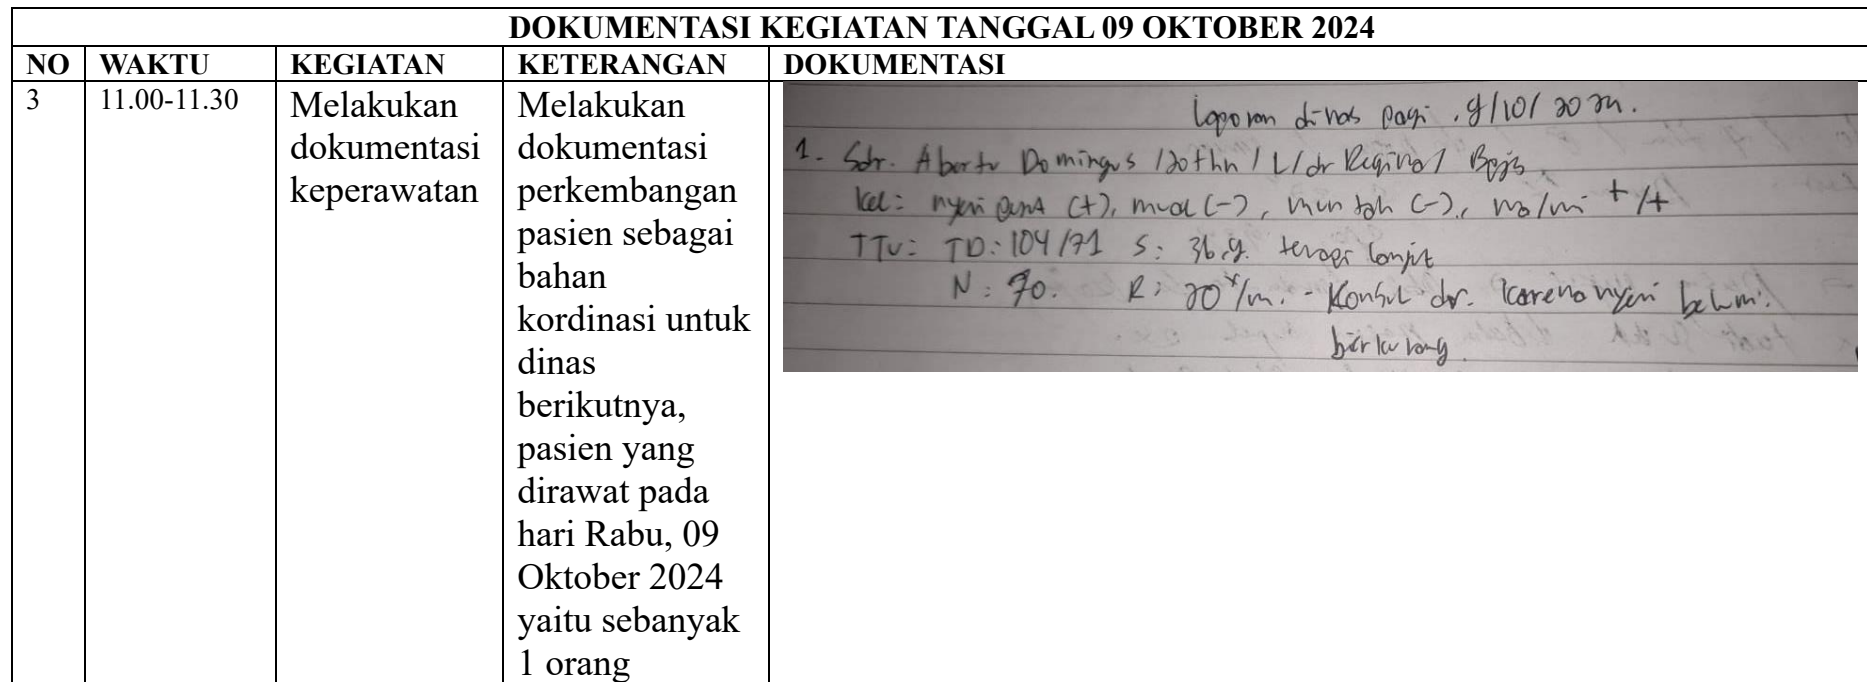 DOKUMENTASI KEGIATAN TANGGAL 09 OKTOBER 2024
NO WAKTU KEGIATAN KETERANGAN DOKUMENTASI
3 11.00-11.30
Melakukan
dokumentasi
keperawatan
Melakukan
dokumentasi
perkembangan
pasien sebagai
bahan
kordinasi untuk
dinas
berikutnya,
pasien yang
dirawat pada
hari Rabu, 09
Oktober 2024
yaitu sebanyak
1 orang
Laporan dinas pagi . 9/10/
1. Sdr. Domingus /20 thn / L/dr Regina/ Bpjs
Kel: nyeri (+), mual (-), muntah (-), ma/mi +/+
TTV: TD: 104/71 S: 36,9. terapi lanjut
N: 90. R: 20x/m. - Konsul dr. karena nyeri belum
berkurang